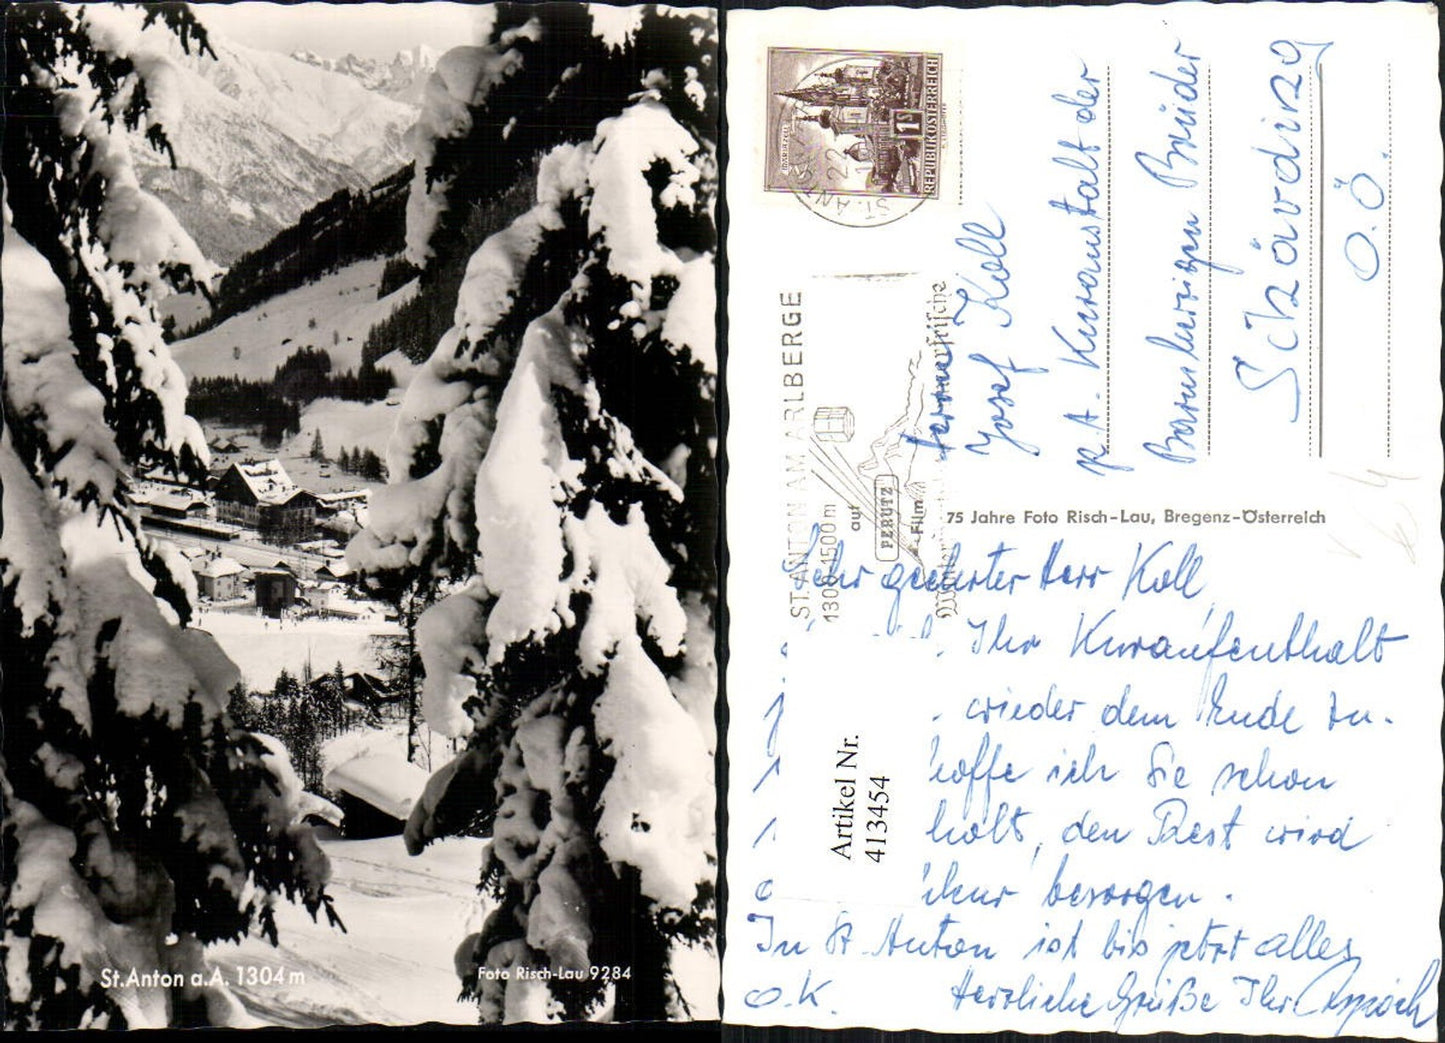 St. Anton a.A. 1304 m
Foto Risch-Lau 9284
REPUBLIK ÖSTERREICH
1 S
ST. ANTON AM ARLBERGE
1300-1500 m
auf
PERUTZ
Film
Josef Koll
p. A. Kuranstalt der
Barmherzigen Brüder
Schärding
O.Ö.
75 Jahre Foto Risch-Lau, Bregenz-Österreich
Sehr geehrter Herr Koll,
Ihr Kuraufenthalt
wieder dem Ende zu-
hoffe ich Sie schon
holt, den Rest wird
besorgen.
In St. Anton ist bis jetzt alles
o.K. Herzliche Grüße Ihr
Artikel Nr.
413454